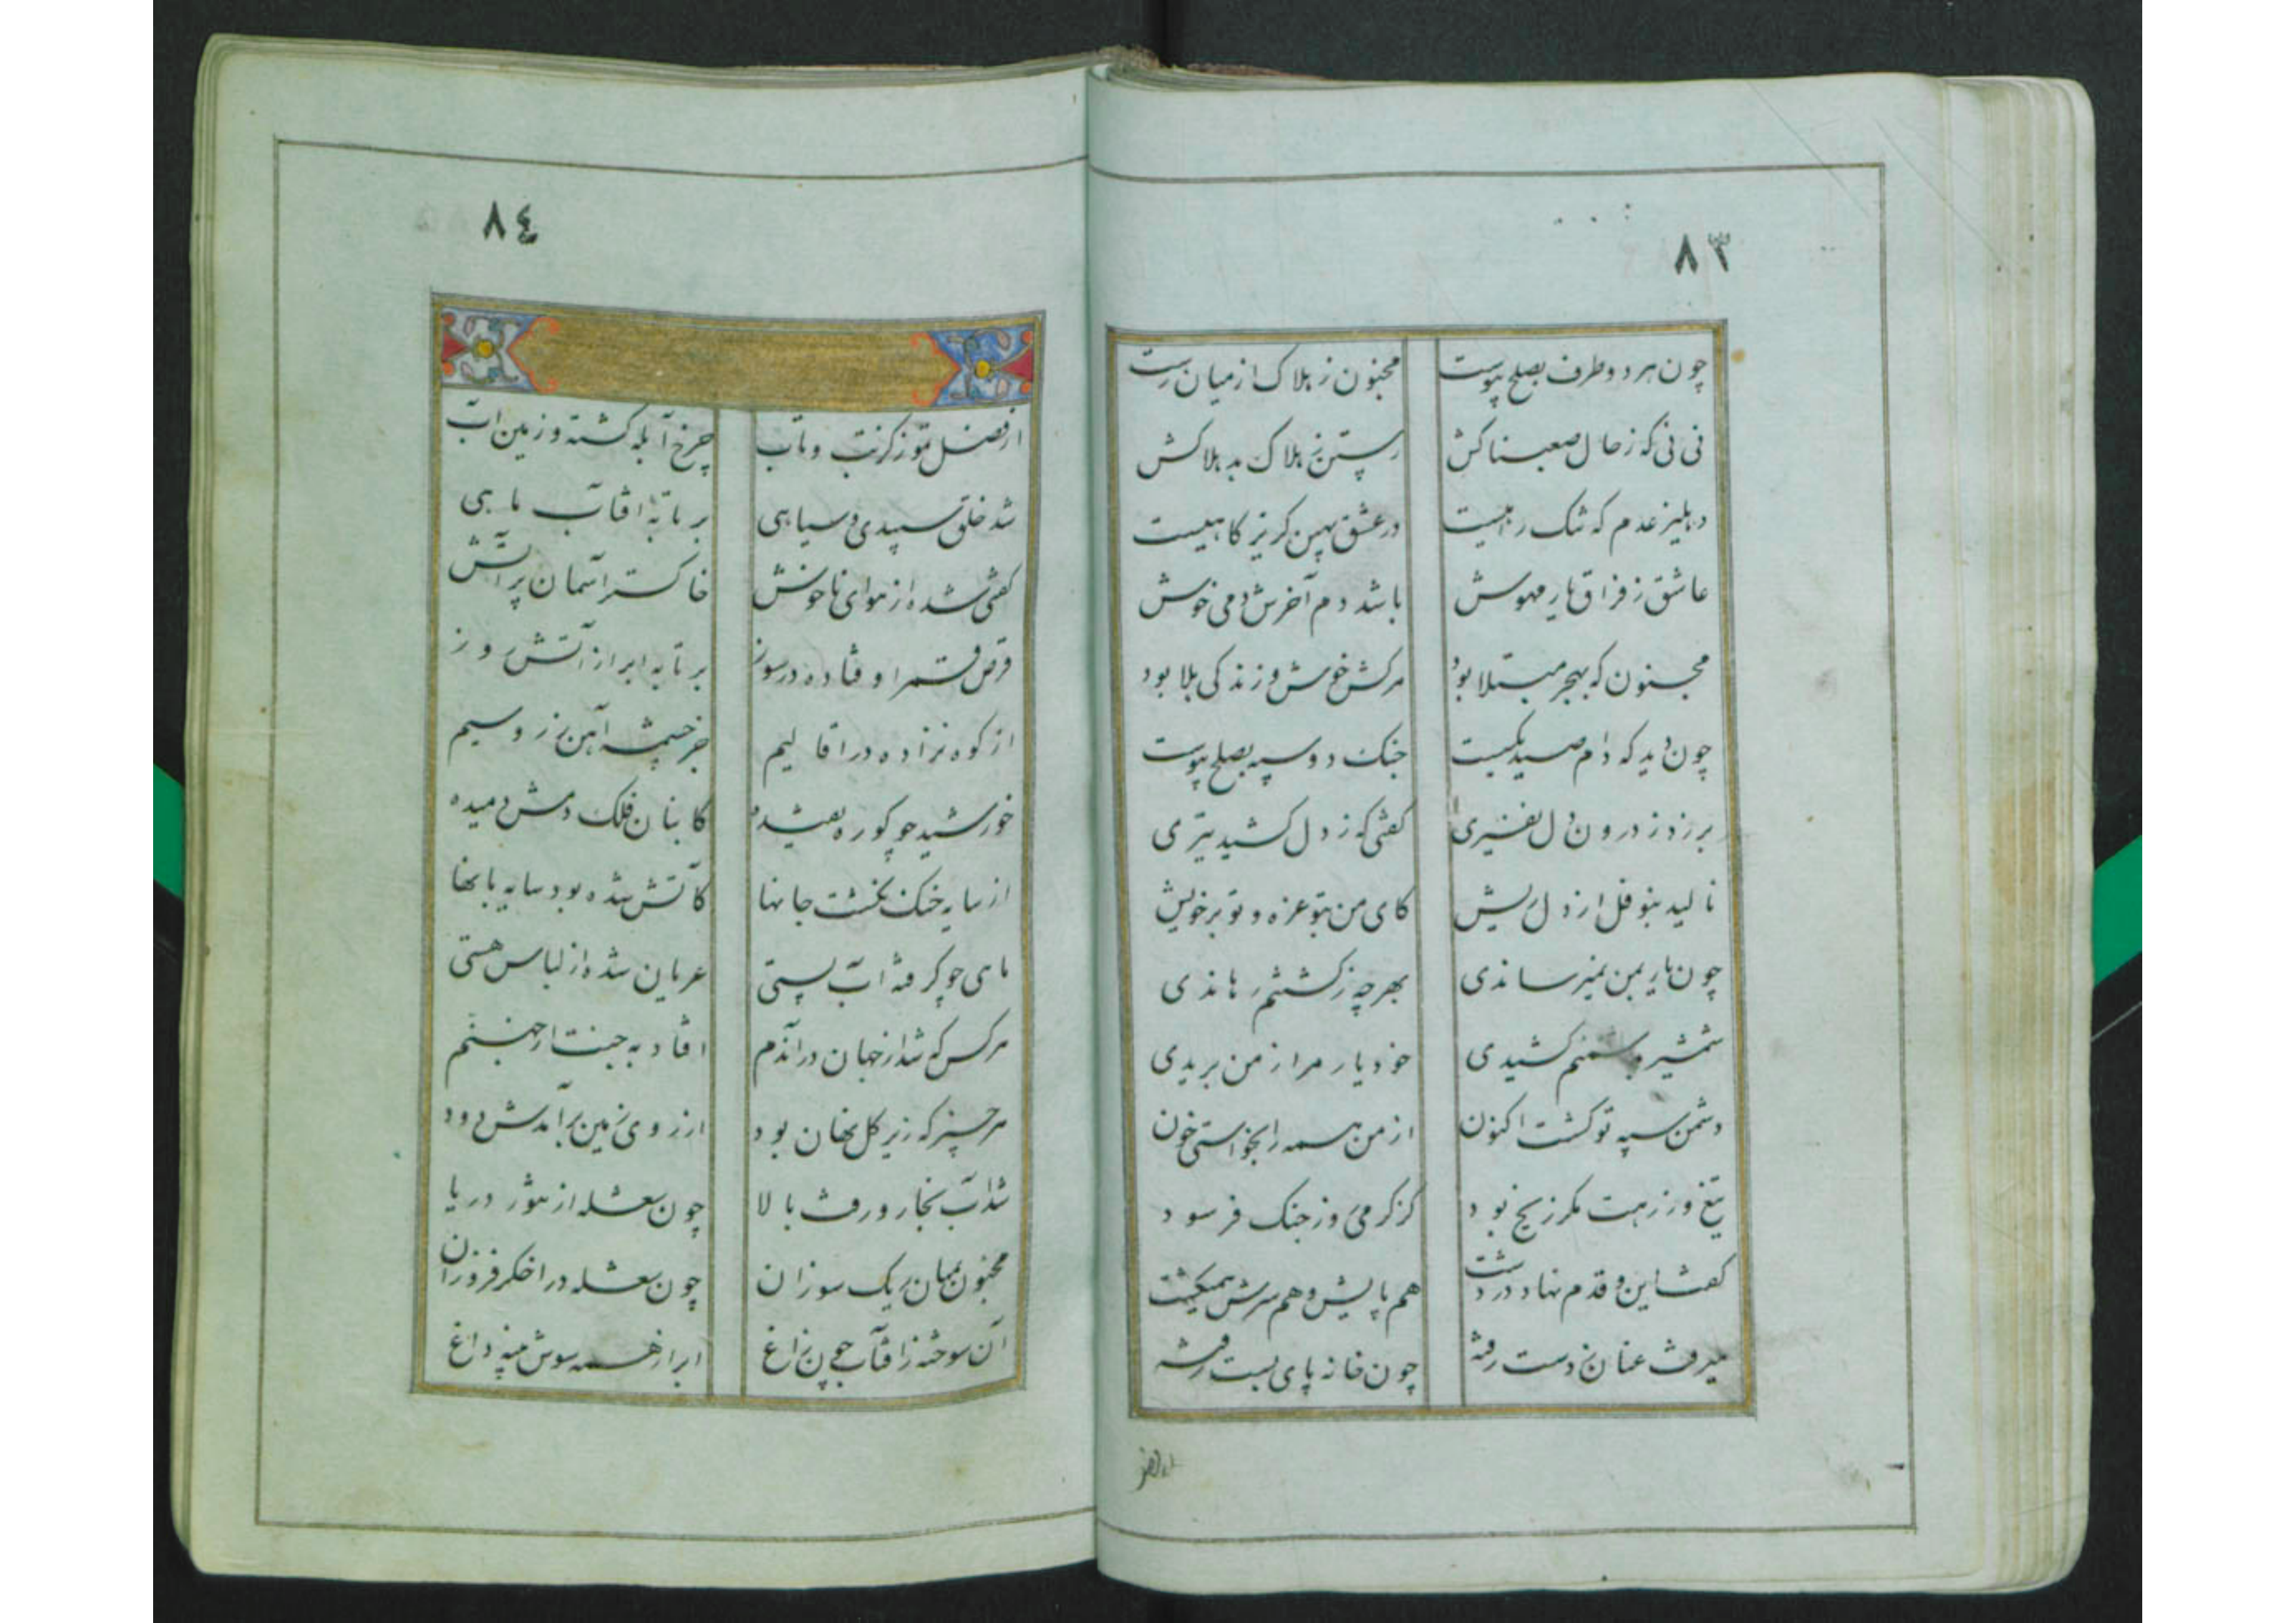 ٨٣
چون هر دو طرف بصلح پیوست مجنون ز هلاک از میان رست
نی نی که ز حال صعبناکش رستن ز هلاک بد هلاکش
دهلیز عدم که تنک راهیست در عشق بهین کریز کاهیست
عاشق ز فراق یار مهوش باشد دم آخرش دمی خوش
مجنون که بهجر مبتلا بود مرکش خوش و زندکی بلا بود
چون دید که دام صید بکسست جنک دو سپه بصلح پیوست
بر زد ز درون دل نفیری کفتی که ز دل کشید تیری
نالید بنوفل از دل ریش کای من بتو غره و تو بر خویش
چون یار بمن نمیرساندی بهر چه ز کشتنم رهاندی
شمشیر و کشیدی خود یار مرا ز من بریدی
دشمن سپه تو کشت اکنون از من همه را بخواستی خون
تیغ و زرهت مکر ز یخ بود کز کرمی روز جنک فرسود
کفت این و قدم نهاد در دشت هم پایش و هم سرش همیکشت
میرفت عنان ز دست رفته چون خانه پای بست رفته
٨٤
از فصل تموز کز تب و تاب چرخ آبله کشته و زمین آب
شد خلق سپیدی و سیاهی بر تابه آفتاب ماهی
کفتی شده از هوای ناخوش خاکستر آسمان پر آتش
قرص قمر اوفتاده در سوز بر تابه ابر از آتش روز
از کوه نزاده در اقالیم جز چشمه آهن زر و سیم
خورشید چو کوره تفتیده کاینان فلک دمش دمیده
از سایه خنک نکشت جانها کآتش شده بود سایه بانها
مای چو کرفته آب پستی عریان شده از لباس هستی
هر کس که شد از جهان در آندم افتاد به جنت از جهنم
هر چیز که زیر کل نهان بود از روی زمین برآمدش دود
شد آب بخار و رفت بالا چون شعله ز سوز دریا
مجنون بمیان ریک سوزان چون شعله در اخکر فروزان
آن سوخته ز آفتاب چون زاغ ابر از همه سوش پنبه داغ